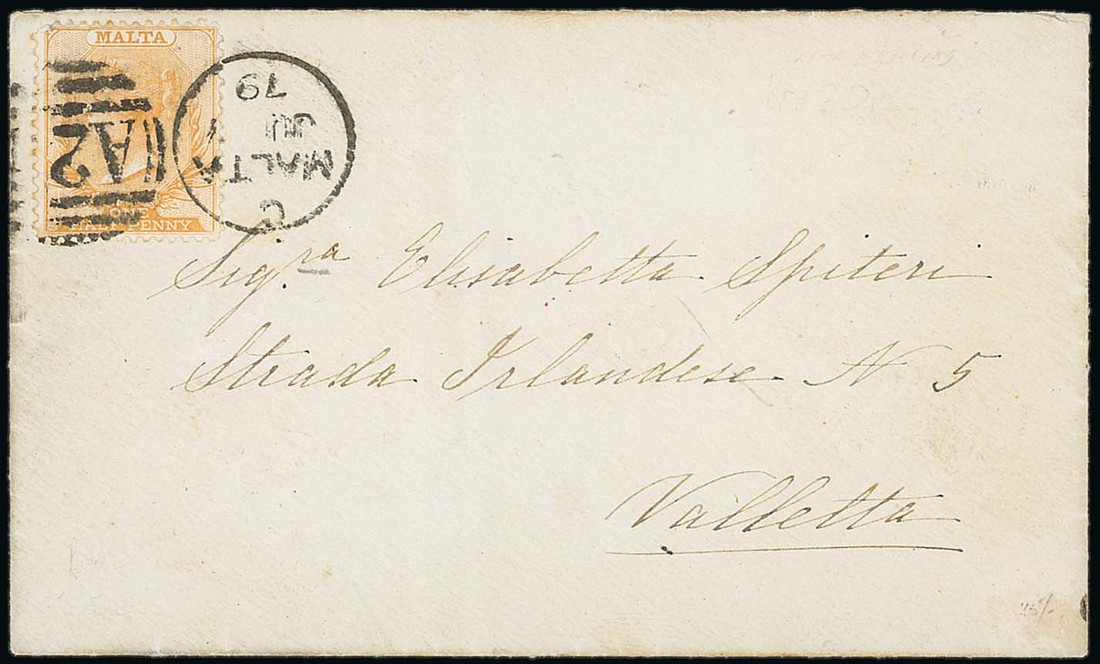 MALTA
ONE
HALF PENNY
A25
C
MALTA
JU
79
Sigra Elisabetta Spiteri
Strada Irlandese N 5
Valletta